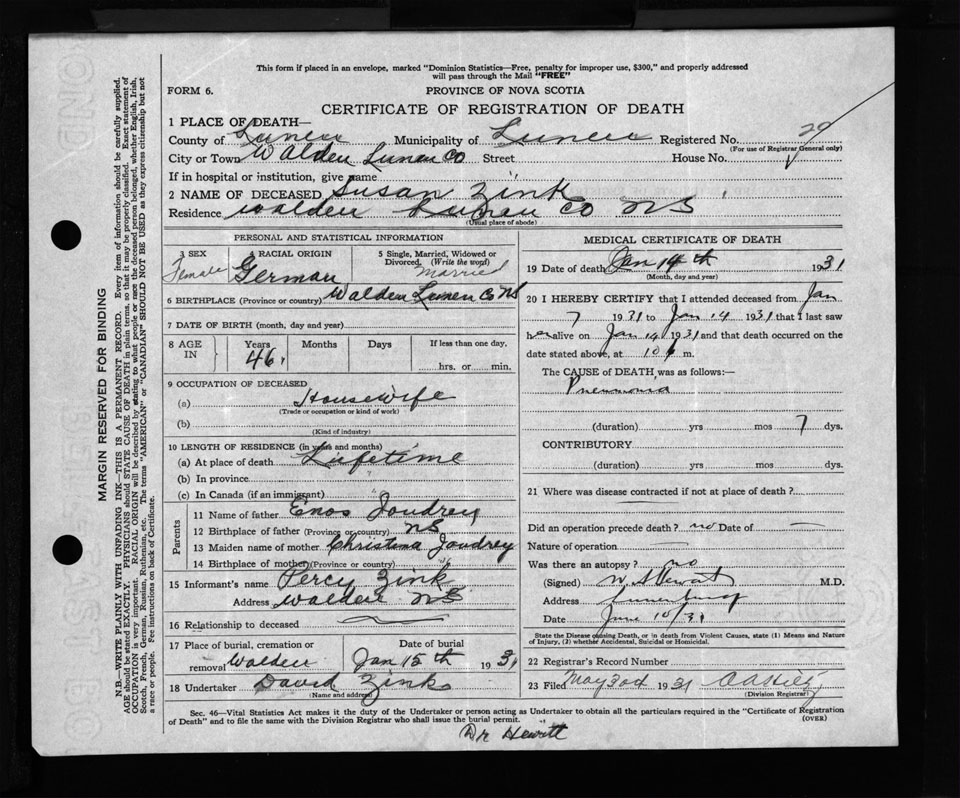 This form if placed in an envelope, marked "Dominion Statistics—Free, penalty for improper use, $300," and properly addressed
will pass through the Mail "FREE"
FORM 6. PROVINCE OF NOVA SCOTIA
CERTIFICATE OF REGISTRATION OF DEATH
1 PLACE OF DEATH—
County of Lunen Municipality of Lunen Registered No. 29
(For use of Registrar General only)
City or Town Walden Lunen Co Street House No.
If in hospital or institution, give name
2 NAME OF DECEASED Susan Zink
Residence Walden Lunen Co NS
(Usual place of abode)
PERSONAL AND STATISTICAL INFORMATION
3 SEX Female
4 RACIAL ORIGIN German
5 Single, Married, Widowed or Divorced. (Write the word) Married
6 BIRTHPLACE (Province or country) Walden Lunen Co NS
7 DATE OF BIRTH (month, day and year)
8 AGE IN Years 46 Months Days If less than one day.
hrs. or min.
9 OCCUPATION OF DECEASED
(a) Housewife
(Trade or occupation or kind of work)
(b)
(Kind of industry)
10 LENGTH OF RESIDENCE (in years and months)
(a) At place of death Lifetime
(b) In province
(c) In Canada (if an immigrant)
Parents
11 Name of father Enos Joudrey
12 Birthplace of father (Province or country) NS
13 Maiden name of mother Christina Joudrey
14 Birthplace of mother (Province or country)
15 Informant's name Percy Zink
Address Walden NS
16 Relationship to deceased
17 Place of burial, cremation or removal Walden Date of burial Jan 15th 1931
18 Undertaker David Zink
(Name and address)
MEDICAL CERTIFICATE OF DEATH
19 Date of death Jan 14th 1931
(Month, day and year)
20 I HEREBY CERTIFY that I attended deceased from Jan
7 1931 to Jan 14 1931 that I last saw
her alive on Jan 14 1931 and that death occurred on
date stated above, at 10 m.
The CAUSE of DEATH was as follows:—
Pneumonia
(duration) yrs mos 7 dys.
CONTRIBUTORY
(duration) yrs mos dys.
21 Where was disease contracted if not at place of death?
Did an operation precede death? no Date of —
Nature of operation —
Was there an autopsy? no
(Signed) M.D.
Address Lunenburg
Date June 10/31
State the Disease causing Death, or in death from Violent Causes, state (1) Means and Nature
of Injury, (2) whether Accidental, Suicidal or Homicidal.
22 Registrar's Record Number
23 Filed May 30th 1931
(Division Registrar)
Sec. 46—Vital Statistics Act makes it the duty of the Undertaker or person acting as Undertaker to obtain all the particulars required in the "Certificate of Registration
of Death" and to file the same with the Division Registrar who shall issue the burial permit. (OVER)
Dr Hewitt
MARGIN RESERVED FOR BINDING
N.B.—WRITE PLAINLY WITH UNFADING INK—THIS IS A PERMANENT RECORD. Every item of information should be carefully supplied.
AGE should be stated EXACTLY. PHYSICIANS should STATE CAUSE OF DEATH in plain terms, so that it may be properly classified. Exact statement of
OCCUPATION is very important. RACIAL ORIGIN will be described by stating to what people or race the deceased person belonged, whether English, Irish,
Scotch, French, German, Russian, Ruthenian, etc. The terms "AMERICAN" or "CANADIAN" SHOULD NOT BE USED as they express citizenship but not
a race or people. See instructions on back of Certificate.